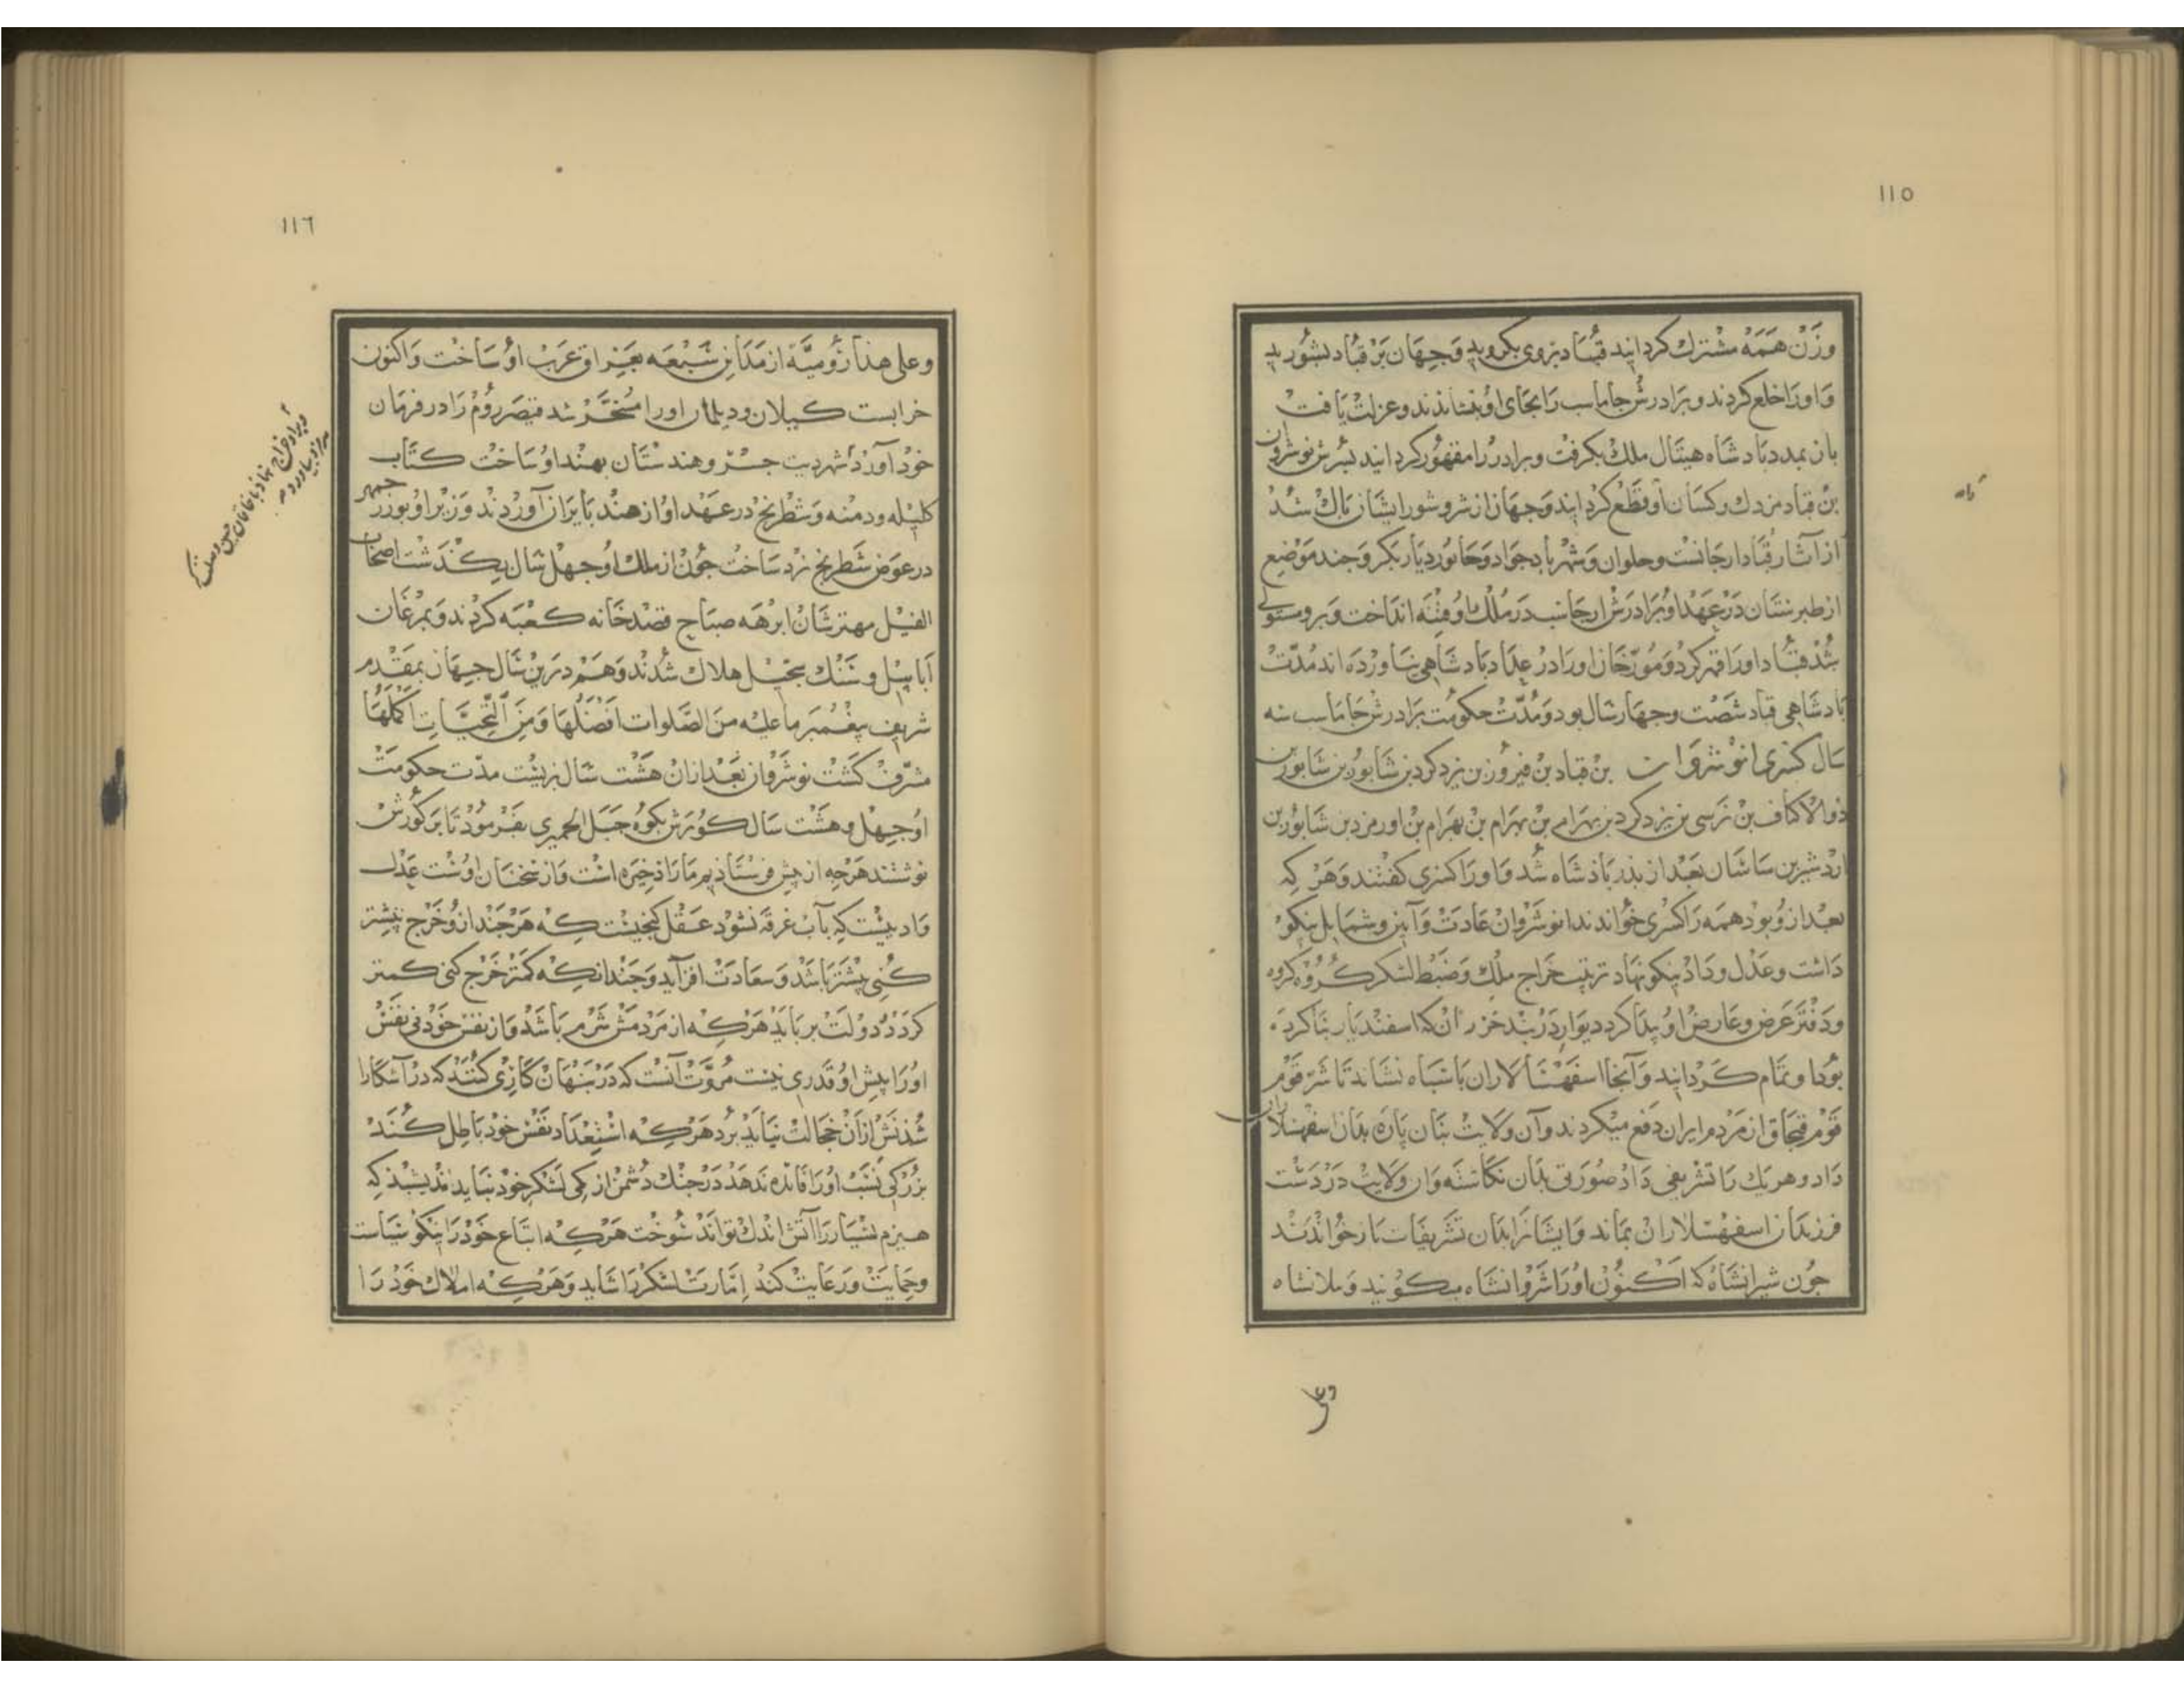 ١١٥
وزن همه مشترك كردانيد قباد بروى بكرويد وجهان بر قباد بشوريد
واورا خلع كردند وبرادرش جاماسب را بجاى او بنشاندند وعزلت يافت
بازبمدد بادشاه هيتال ملك بكرفت وبرادر را مقهور كردانيد بسرش نوشروان
بن قباد مزدك وكسان او قطع كردانيد وجهان از شر وشور ايشان باك شد
از آثار قباد ارجانست وحلوان وشهرباد جواد وخابور ديار بكر وجند موضع
از طبرستان در عهد او برادرش ارجانسب در ملك او فتنه انداخت وبرو مستولى
شد قباد اورا قهر كرد ومورخان اورا در عداد بادشاهى نياورده اند مدت
بادشاهى قباد شصت وجهار سال بود ومدت حكومت برادرش جاماسب سه
سال كسرى انوشروان بن قباد بن فيروز بن يزدكرد بن شابور بن شابور بن
ذوالاكتاف بن نرسى بن يزدكرد بن بهرام بن بهرام بن بهرام بن اورمزد بن شابور بن
اردشير بن ساسان بعد از بدر باذشاه شد واورا كسرى كفتند وهر كه
بعد از وبود همه را كسرى خواندند انوشروان عادت وآيين وشمايل نيكو
داشت وعدل وداد نيكو نهاد ترتيب خراج ملك وضبط لشكر كروه كروه
ودفتر عرض وعارض او بيدا كرد ديوار دربند خزران كه اسفنديار بنا كرده
بودا وتمام كردانيد وآنجا اسفهسالاران باسباه نشاند تا شر قوم
قوم قبجاق از مردم ايران دفع ميكردند وآن ولايت بنان باره بدان اسفهسلاران
داد وهريك را تشريفى داد صورتى بدان نكاشته وان ولايت در دست
فرزندان اسفهسلاران بماند وايشانرا بدان تشريفات باز خواندند
جون شيرانشاه كه اكنون اورا شروانشاه ميكويند وملانشاه
وعلى
١١٦
وعلى هذا روميه از مداين سبعه بعراق عرب او ساخت واكنون
خرابست كيلان وديلمان اورا مسخر شد قيصر روم را در فرمان
خود آورد شهر ديت جسر وهندستان بهند او ساخت كتاب
كليله ودمنه وشطرنج در عهد او از هند بايران آوردند وزير او بوزرجمهر
در عوض شطرنج نرد ساخت جون از ملك او جهل سال بكذشت اصحاب
الفيل مهترشان ابرهه صباح قصد خانه كعبه كردند وبمرغان
ابابيل وسنك سجيل هلاك شدند وهم درين سال جهان بمقدم
شريف بيغمبر ما عليه من الصلوات افضلها ومن التحيات اكملها
مشرف كشت نوشروان بعد ازان هشت سال بزيست مدت حكومت
او جهل وهشت سال كورش بكوه جبل الحميرى بفرمود تا بر كورش
نوشتند هرجه از بيش فرستاديم ما را ذخيره است واز سخنان اوست عدل
واديست كه بآب غرقه نشود عقل كنجيست كه هرجند ازو خرج بيشتر
كنى بيشتر باشد وسعادت افزايد وجندانكه كمتر خرج كنى كمتر
كردد دولت بر بايد هركه از مردمش شرم باشد واز نفس خود نى نفس
اورا بيش او قدرى نيست مروت آنست كه در بنهان كارى كنند كه در آشكارا
شدنش ازان خجالت نبايد برد هركه استعداد نفس خود باطل كند
بزركى نسب اورا فايده ندهد در جنك دشمن از كمى لشكر خود نبايد انديشيد كه
هيزم بسيار را آتش اندك تواند سوخت هركه اتباع خود را نيكو سياست
وحمايت ورعايت كند امارت لشكر را شايد وهركه املاك خود را